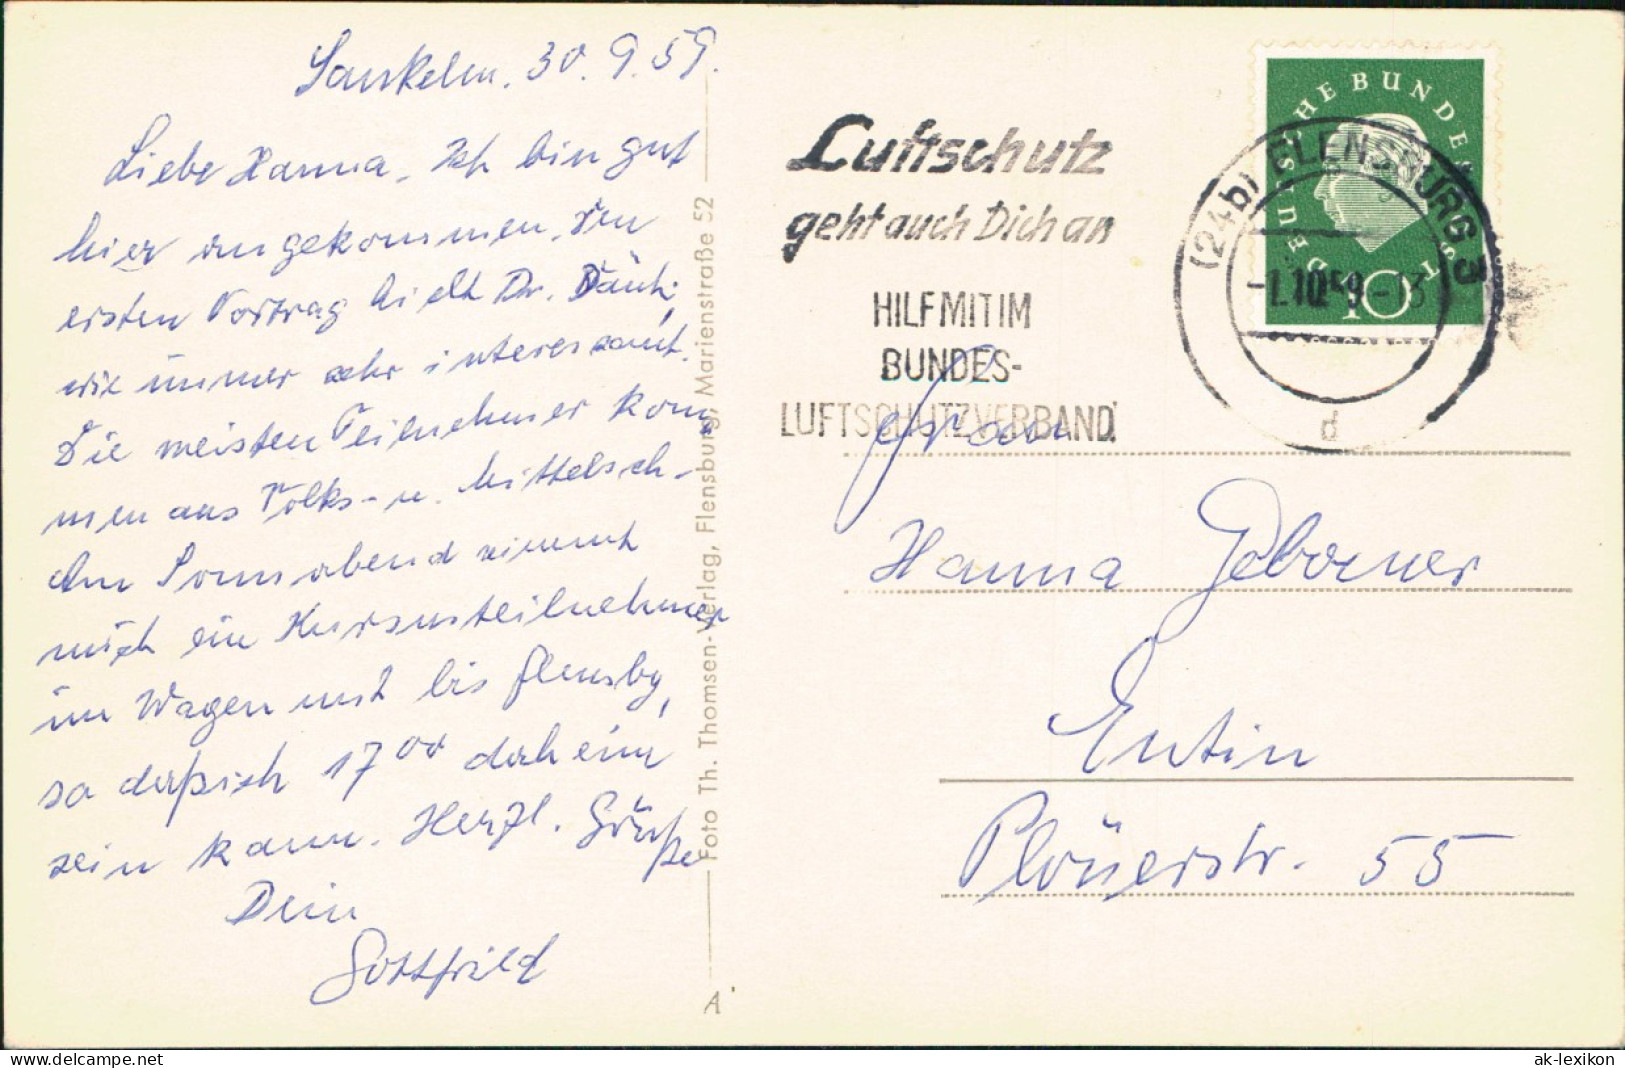 Sankelm. 30.9.59.
Liebe Hanna, Ich bin gut
hier angekommen. Den
ersten Vortrag hielt Dr.
wie immer sehr interessant.
Die meisten Teilnehmer kom
men aus Volks- u. Mittelsch-
Am Sonnabend nimmt
mich ein Kursusteilnehmer
im Wagen mit bis Flensbg,
so daß ich 17⁰⁰ daheim
sein kann. Herzl. Grüße
Dein
Gottfried
Foto Th. Thomsen-Verlag, Flensburg, Marienstraße 52
A
Luftschutz
geht auch Dich an
HILF MIT IM
BUNDES-
LUFTSCHUTZVERBAND!
DEUTSCHE BUNDESPOST
10
(24b) FLENSBURG 3
-1.10.59-13
d
Frau
Hanna
Eutin
Plönerstr. 55
delcampe.net
ak-lexikon